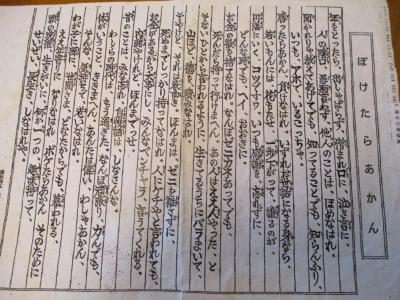 ぼけたらあかん
年をとったら、出しゃばらず、憎まれ口に、泣き言に、
人のかげ口、愚痴言わず、他人のことは、ほめなはれ、
聞かれりゃ教えてあげても、知ってることでも、知らんふり、
いつでもアホでいるこっちゃ、
勝ったらあかん、負けなはれ、いずれお世話になる身なら、
若いもんには、花もたせ、一歩さがって、譲るのが、
円満にいく、コツですわ、いつも感謝を、忘れずに、
どんな時でも、ヘイ、おおきに、
お金の欲を捨てなはれ、なんぼゼニカネあってでも、
死んだら持って行けまへん、あの人はええ人やった、と
そないひとから言われるように、生きてるうちにバラまいて、
山ほど徳を積みなはれ、
そやけど、それは表向き、ほんまは、ゼニを離さずに、
死ぬまでしっかり持ってなはれ、人にケチやと言われても、
お金があるから大事にし、みんなベンチャラ言うてくれる、
内緒やけれど、ほんまだっせ、
昔のことは、みな忘れ、自慢話はしなはんな、
わしらの時代は、もう過ぎた、なんぼ頑張り、力んでも、
体がいうこときまへん、あんたは偉い、わしゃあかん、
そんな気持ちで、おりなはれ、
わが子に孫に、世間さま、どなたからでも、慕われる、
ええ年寄りに、なりなはれ、ボケたらあかん、そのために
頭の洗濯、生きがいに、何か一つの、趣味持って、
せいぜい、長生き、しなはれや、